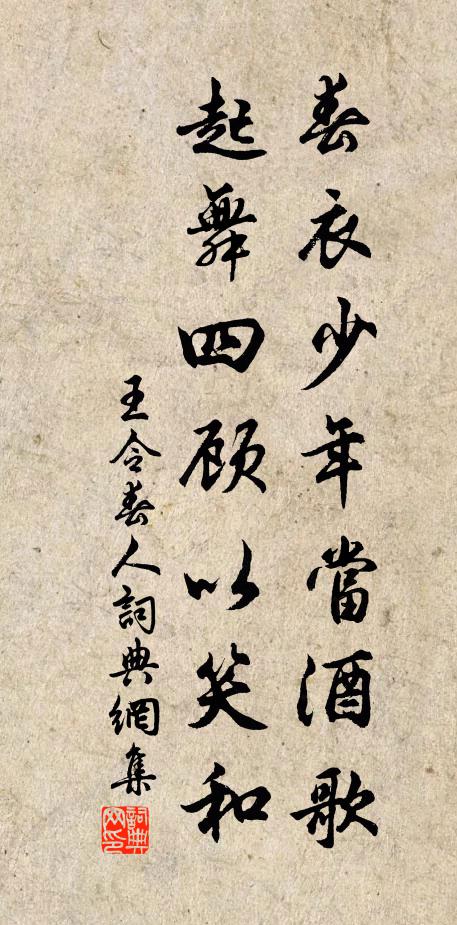 春衣少年當酒歌
起舞四顧以笑和
王令春人詞典網集
詞典网印